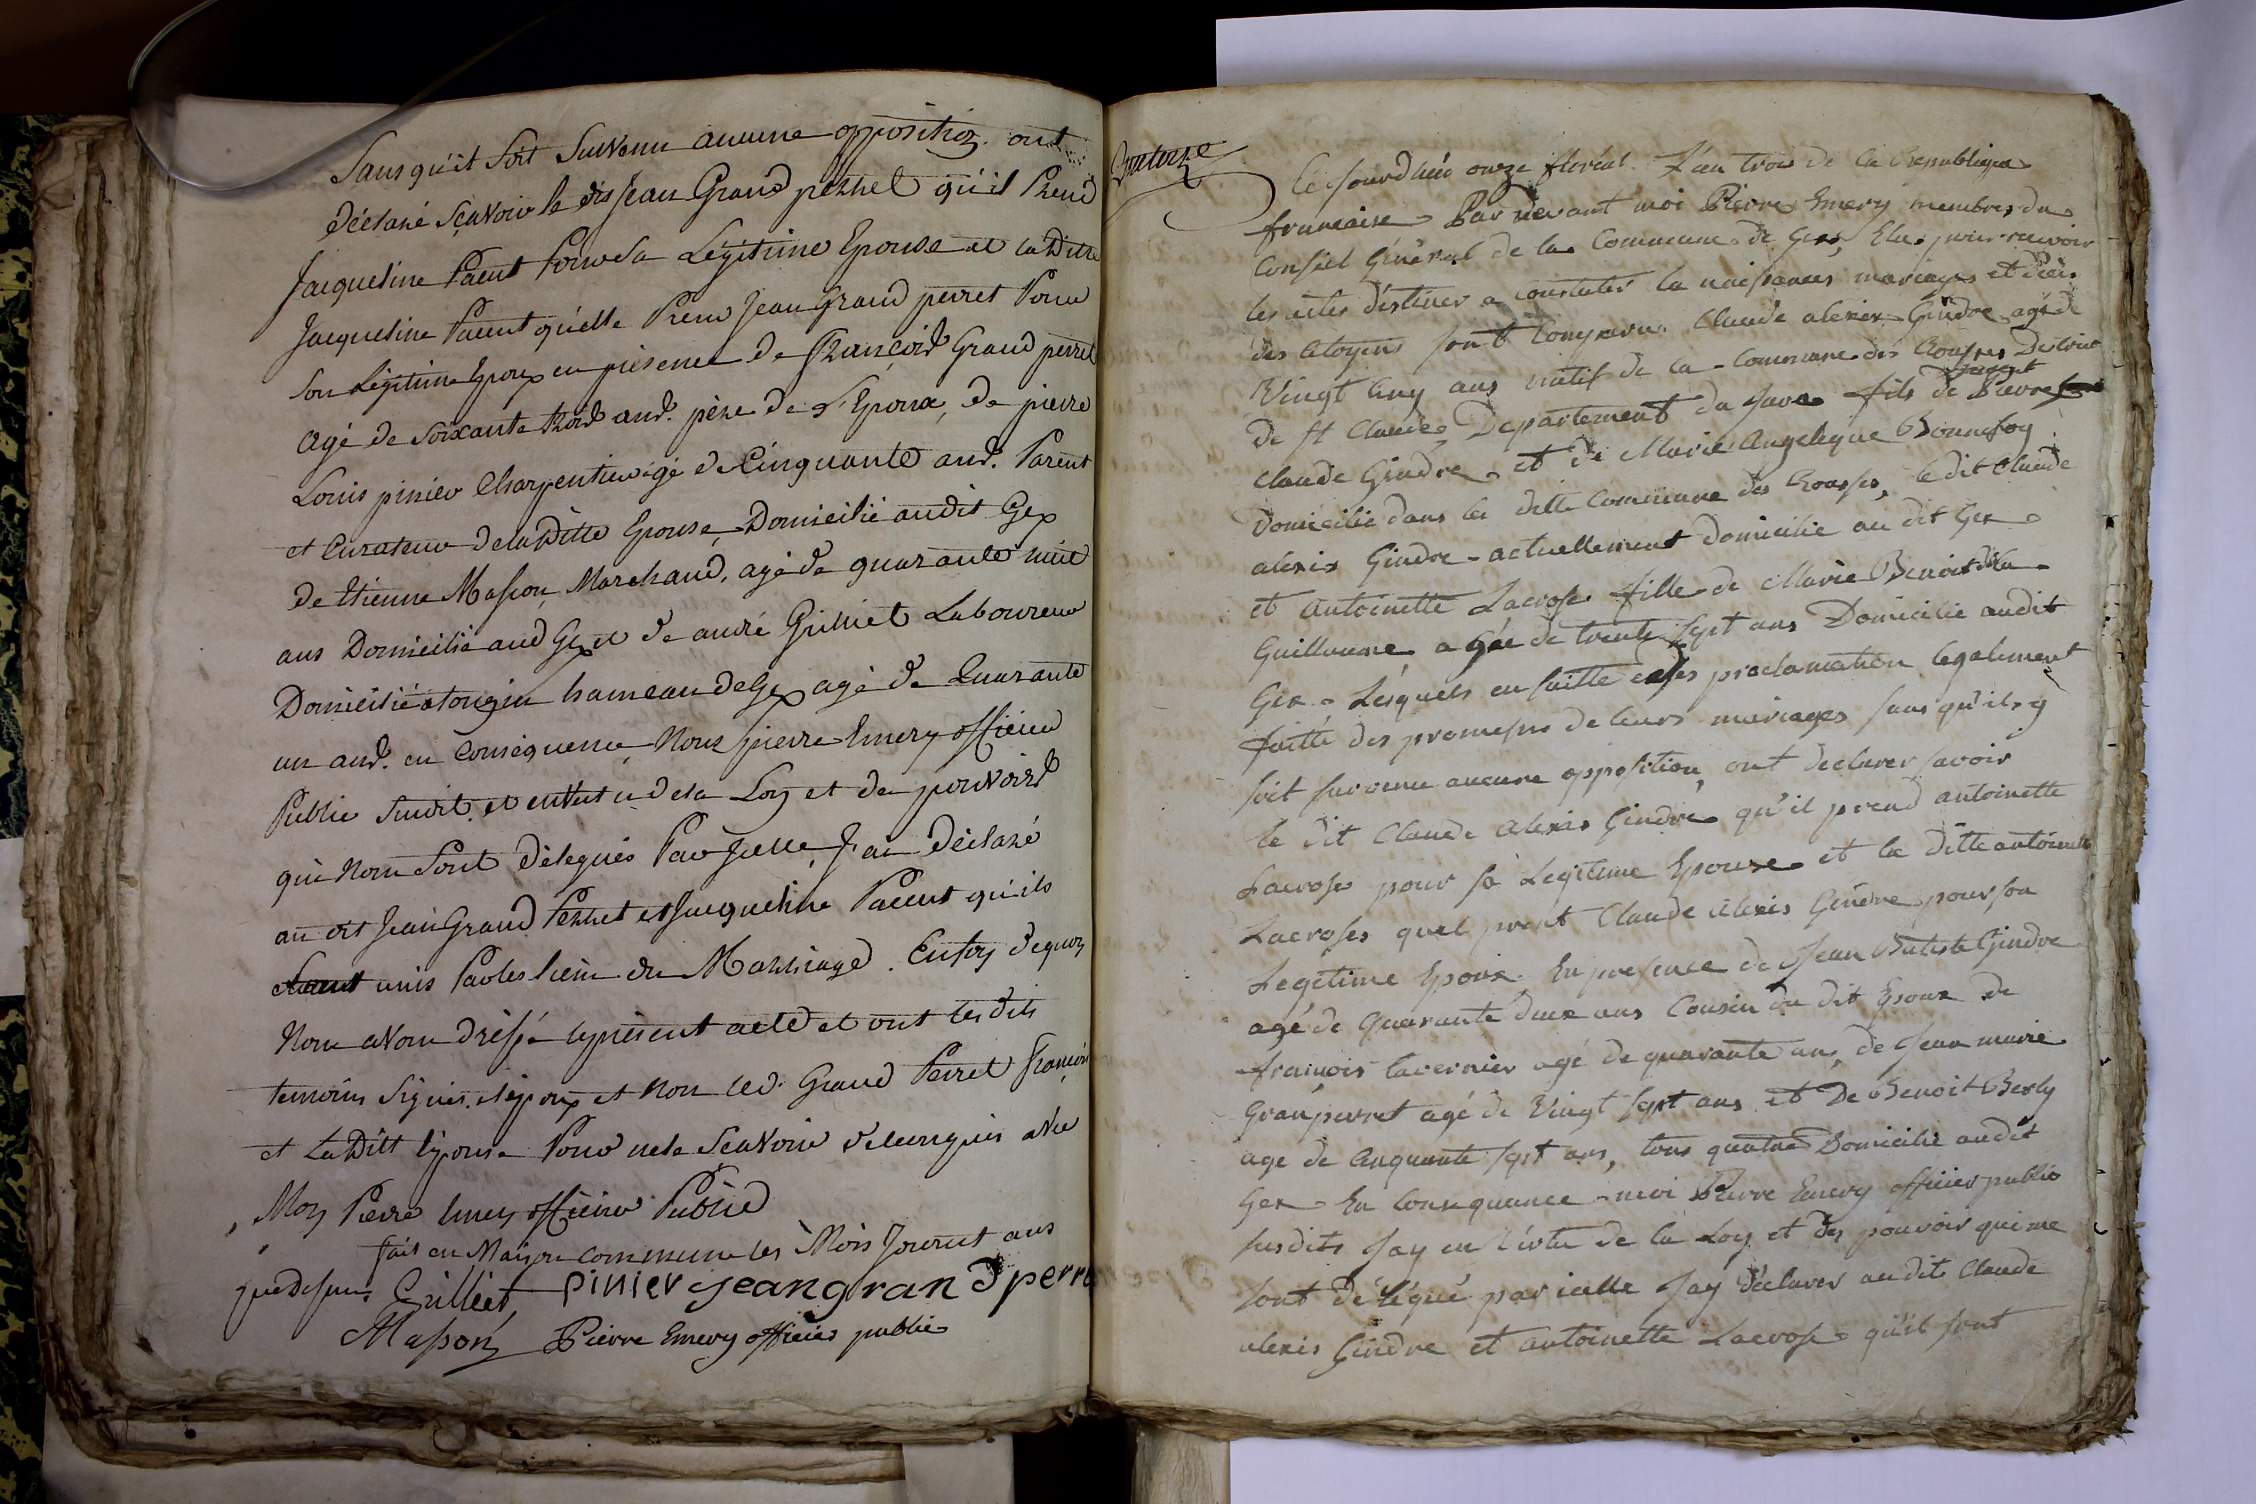 Sans qu'il soit survenu aucune opposition. ont
déclaré sçavoir le dis jean Grand perret qu'il Prend
Jacqueline Pacent Pour sa Légitime Epouse et la Ditte
Jacqueline Pacent qu'elle Prend Jean Grand perret Pour
son Légitime Epoux en présence de François Grand perret
agé de soixante trois ans. père de L'Epoux, de pierre
Louis pinier Charpentier agé de Cinquante ans. Parent
et Curateur de la Ditte Epouse, Domicilié audit Gex
de Etienne Masson Marchand, agé de quarante huit
ans Domicilié aud Gex et de andré Grilliet Laboureur
Domicilié a tougin hameau de Gex agé de Quarante
un ans. en conséquence, Nous pierre Emery officier
Public susdit. et en vertu de la Loy et des pouvoirs
qui Nous sont délégués Par Icelle, J'ai Déclaré
au dit Jean Grand Perret et Jacqueline Pacent qu'ils
unis Par les liens du Marriage. En foy de quoy
Nous avons dressé le présent acte et ont les dits
temoins signés. l'époux et non led. Grand Perret François
et La Ditt épouse Pour ne le sçavoir de ce enquis avec
Moy Pierre Emery officier Public
fait en Maison commune les Mois Jour et ans
que dessus. Grilliet, pinier jean gran d perret
Masson Pierre Emery officier public
Ce Jourd'huis onze floréal. L'an trois de la Republique
francaise. Par devant moi Pierre Emery membres du
Conseil Général de la Commune de Gex, Elu pour recevoir
les actes destinés a constater la naissances mariages et décès
des Citoyens sont Comparu. Claude alexis Gindre agé de
Vingt Cinq ans natif de la Commune des Rousses District
de st Claude, Departement du Jura fils de Pierre
Claude Gindre et de Marie Angelique Bonnefoy
Domicilié dans la ditte Commune des Rousses, le dit Claude
alexis Gindre actuellement domicilié au dit Gex
et Antoinette Lacrose fille de Marie Benoit dela
Guillaume agée de trente sept ans Domicilie audit
Gex. Lesquels en suitte proclamation légalement
faitte des promesses de leurs mariages sans qu'il y
soit survenu aucune opposition, ont declarer savoir
le dit Claude alexis Gindre qu'il prend antoinette
Lacrose pour sa Legitime Epouse et la ditte antoinette
Lacroses quel prent Claude alexis Gindre pour son
Legitime Epoux. En presence de Jean Batiste Gindre
agé de Quarante deux ans Cousin du dit Epoux de
françois tavernier agé de quarante ans, de Jean marie
Granperret agé de Vingt sept ans et De Benoit Besly
age de Cinquante sept ans, tous quatre Domicilié audit
Gex. En Consequance moi Pierre Emery officier public
susdits Jay en vertu de la Loy et des pouvoir qui me
sont délégué par icelle Jay déclarer au dits Claude
alexis Gindre et antoinette Lacrose qu'il sont